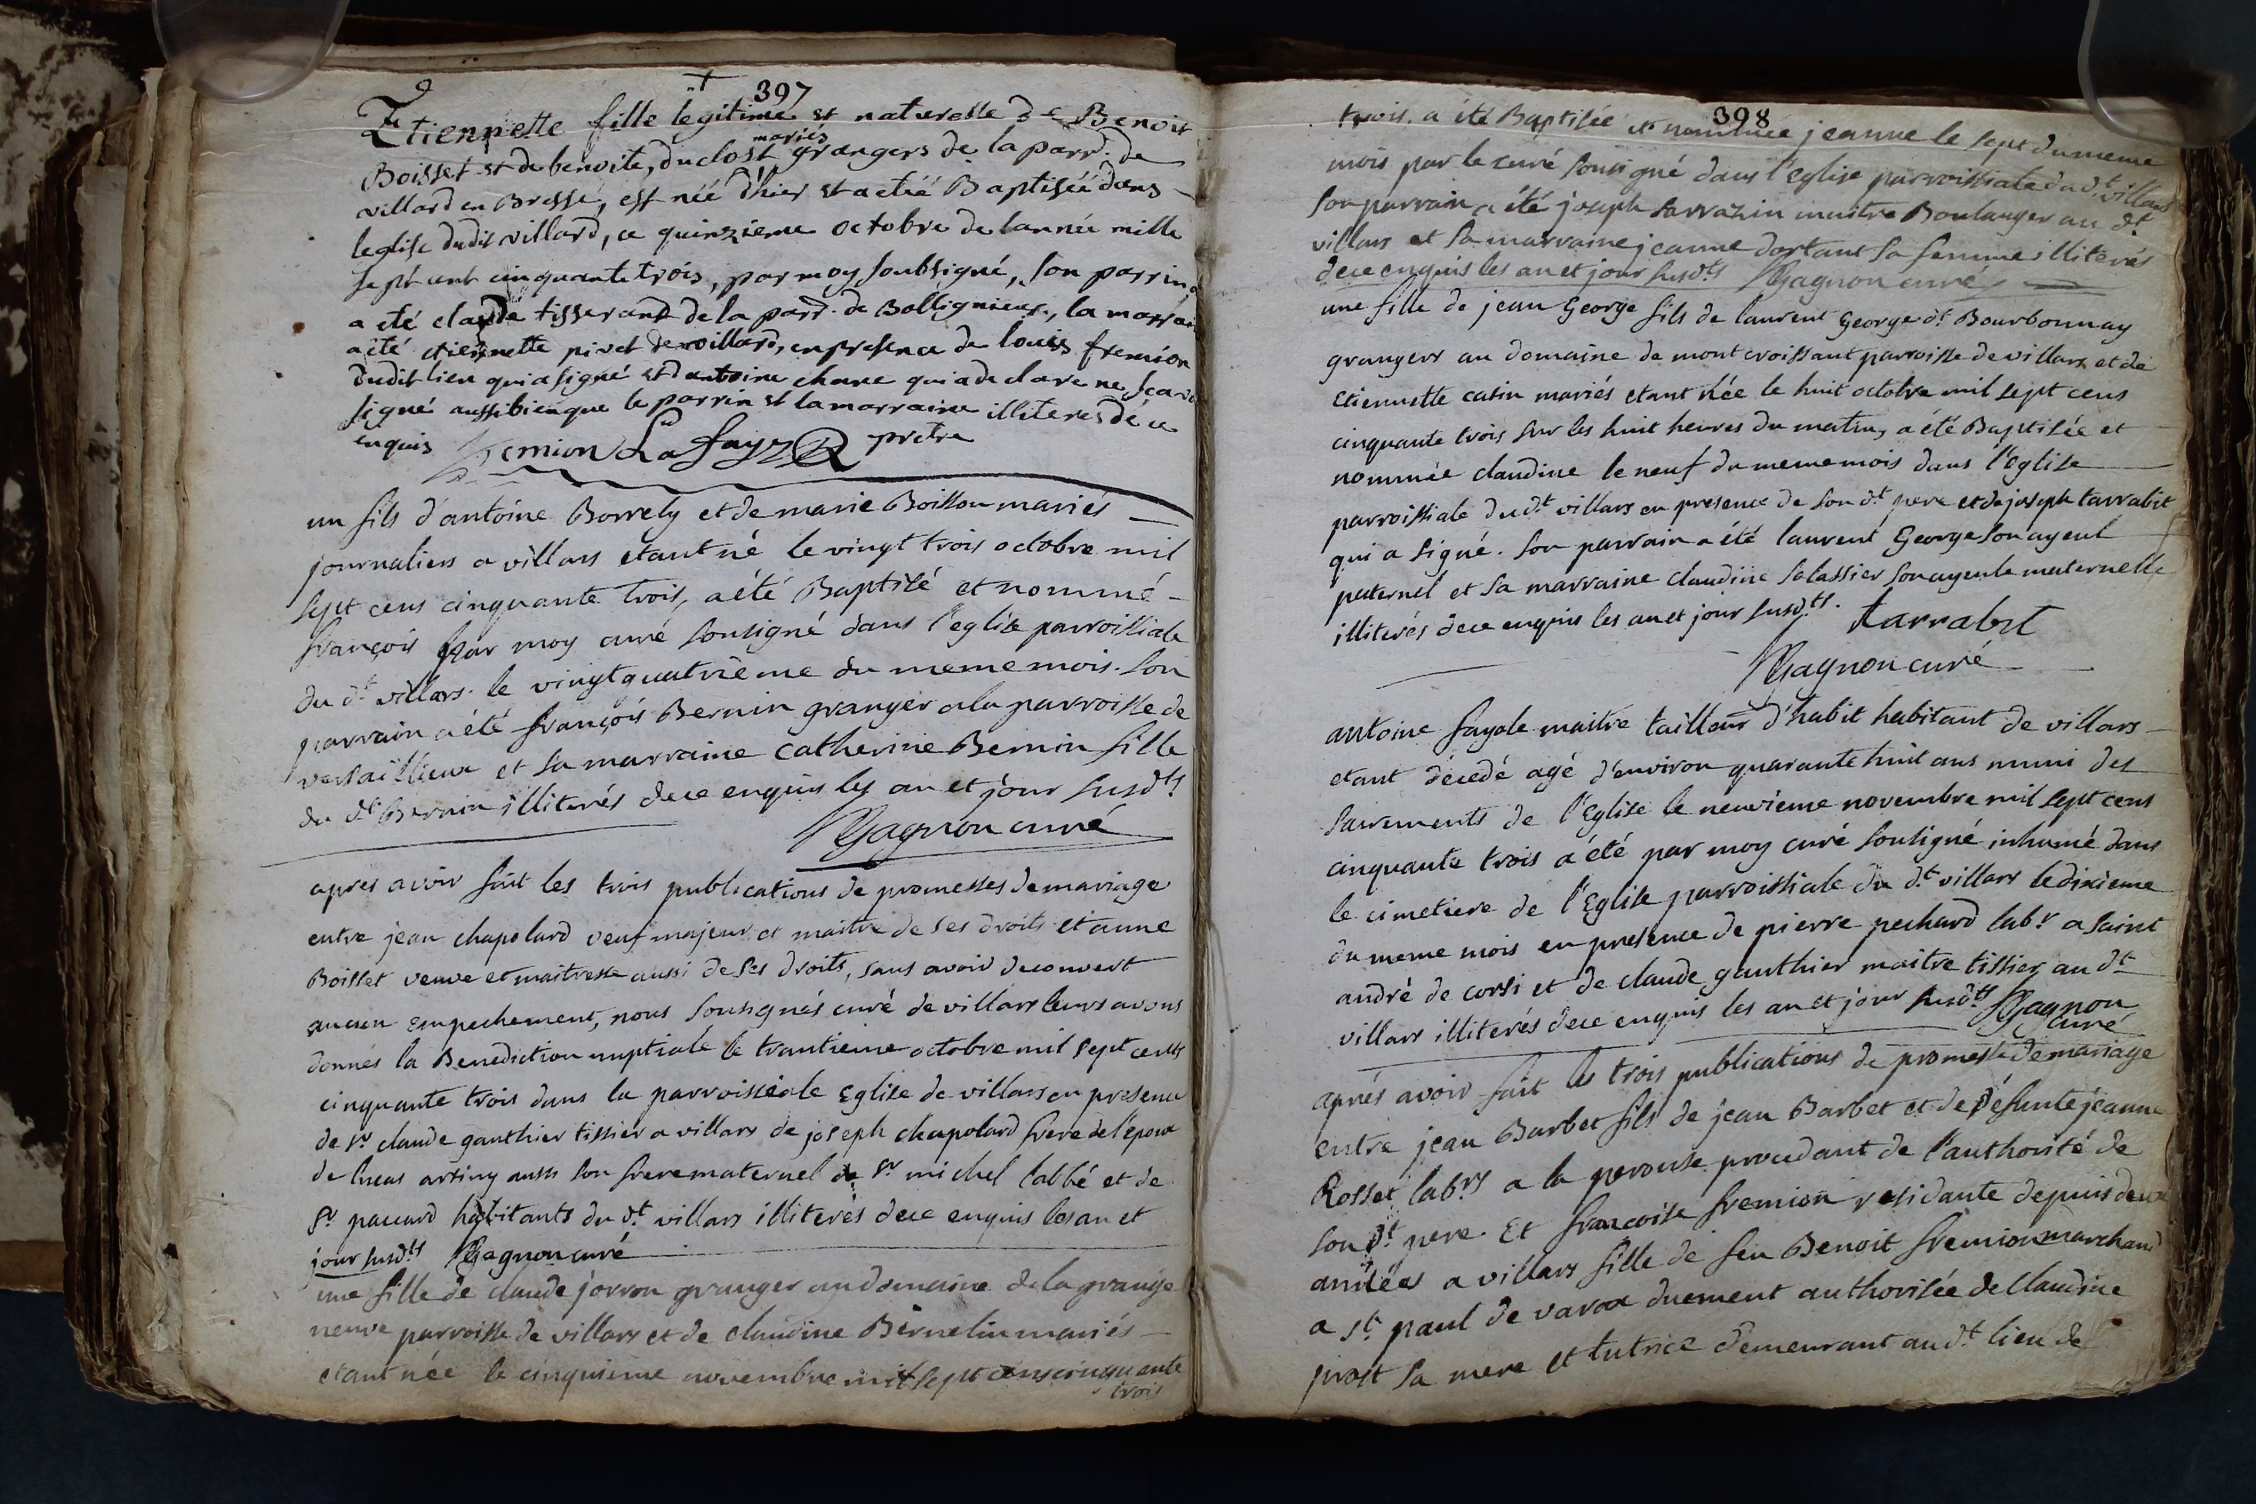 397
Etiennette fille legitime et naturelle de Benoit
Boisset et de benoite, duclost mariés grangers de la parr. de
villard en Bresse, est née d'hier et a etéé Baptiséé dans
leglise dudit villard, ce quinzieme octobre de lannée mille
sept cent cinquante trois, par moy soubsigné, son parrin
a eté claude tisserand de la parr. de Bolligneux, la marrai
a eté etiennette pivet de villard, en presence de louis fremion
dudit lieu qui a signé et d'antoine chane qui a declare ne scavoi
signé aussi bien que le parrin et la marraine illiteres dé ce
enquis fremion La faye prètre
un fils d'antoine Borrely et de marie Boisson mariés
journaliers a villars etant né le vingt trois octobre mil
sept cens cinquante trois, a été Baptisé et nommé
françois par moy curé sousigné dans l'eglise parroissiale
du dt villars le vingtquatrieme du meme mois. son
parrain a été françois Bernin granger a la parroisse de
versaillieux et sa marraine catherine Bernin fille
du dt Bernin illiterés de ce enquis les an et jour susdts
Gagnon curé
apres avoir fait les trois publications de promesses de mariage
entre jean chapolard veuf majeur et maitre de ses droits et anne
Boisset veuve et maitresse aussi de ses droits, sans avoir decouvert
aucun empechement, nous sousignés curé de villars leurs avons
donnés la Benediction nuptiale le trantieme octobre mil sept cents
cinquante trois dans la parroissiale Eglise de villars en presence
de sr claude gauthier tissier a villars de joseph chapolard frere de l'epoux
de lucas artiny aussi son frere maternel de sr michel labbé et de
sr paccard habitants du dt villars illiterés de ce enquis les an et
jour susdts Gagnon curé
une fille de claude jorron granger au domaine de la grange
neuve parroisse de villars et de claudine Bernelin mariés
etant née le cinquieme novembre mil sept cens cinquante
trois
398
trois, a été Baptisée et nommée jeanne le sept du meme
mois par le curé sousigné dans l'eglise parroissiale du dt villars
son parrain a été joseph sarrazin maitre Boulanger au dt
villars et sa marraine jeanne dortant sa femme illiterés
de ce enquis les an et jour susdts Gagnon curé
une fille de jean George fils de laurent George dt Bourbonnay
grangers au domaine de mont croissant parroisse de villars et de
etiennette catin mariés etant née le huit octobre mil sept cens
cinquante trois sur les huit heures du matin, a été Baptisée et
nommée claudine le neuf du meme mois dans l'eglise
parroissiale du dt villars en presence de son dt pere et de joseph tarrabit
qui a signé. son parrain a été laurent George son ayeul
paternel et sa marraine claudine salassier son ayeule maternelle
illiterés de ce enquis les an et jour susdts. tarrabit
Gagnon curé
antoine fayole maitre tailleur d'habit habitant de villars
etant decedé agé d'environ quarante huit ans muni des
sacrements de l'Eglise le neuvieme novembre mil sept cens
cinquante trois a été par moy curé sousigné inhumé dans
le cimetiere de l'Eglise parroissiale du dt villars le dixieme
du meme mois en presence de pierre pechard labr a saint
andré de corsi et de claude gauthier maitre tissier au dt
villars illiterés de ce enquis les an et jour susdts Gagnon
curé
aprés avoir fait les trois publications de promesse de mariage
entre jean Barbet fils de jean Barbet et de défunte jeanne
Rosset labrs a la perouse procedant de l'authorité de
son dt pere. Et francoise fremion residante depuis deux
années a villars fille de feu Benoit fremion marchand
a st paul de varax duement authorisée de claudine
prost sa mere et tutrice demeurant au dt lieu de